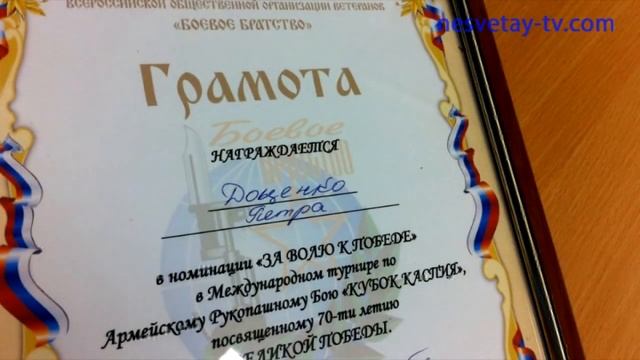 nesvetay-tv.com
ВСЕРОССИЙСКОЙ ОБЩЕСТВЕННОЙ ОРГАНИЗАЦИИ ВЕТЕРАНОВ
«БОЕВОЕ БРАТСТВО»
Грамота
Боевое
НАГРАЖДАЕТСЯ
Дощенко
Петра
в номинации «ЗА ВОЛЮ К ПОБЕДЕ»
в Международном турнире по
Армейскому Рукопашному Бою «КУБОК КАСПИЯ»,
посвященному 70-ти летию
ЕЛИКОЙ ПОБЕДЫ.